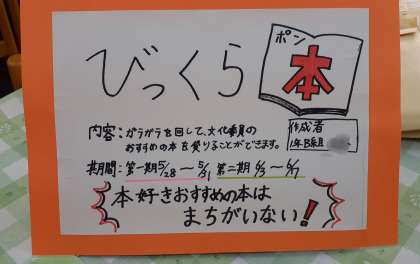 びっくら
ポン
本
作成者
1年B組
内容:ガラガラを回して、文化委員の
おすすめの本を受けることができます。
期間:第一期5/28〜5/31 第二期6/3〜6/7
本好きおすすめの本は
まちがいない!